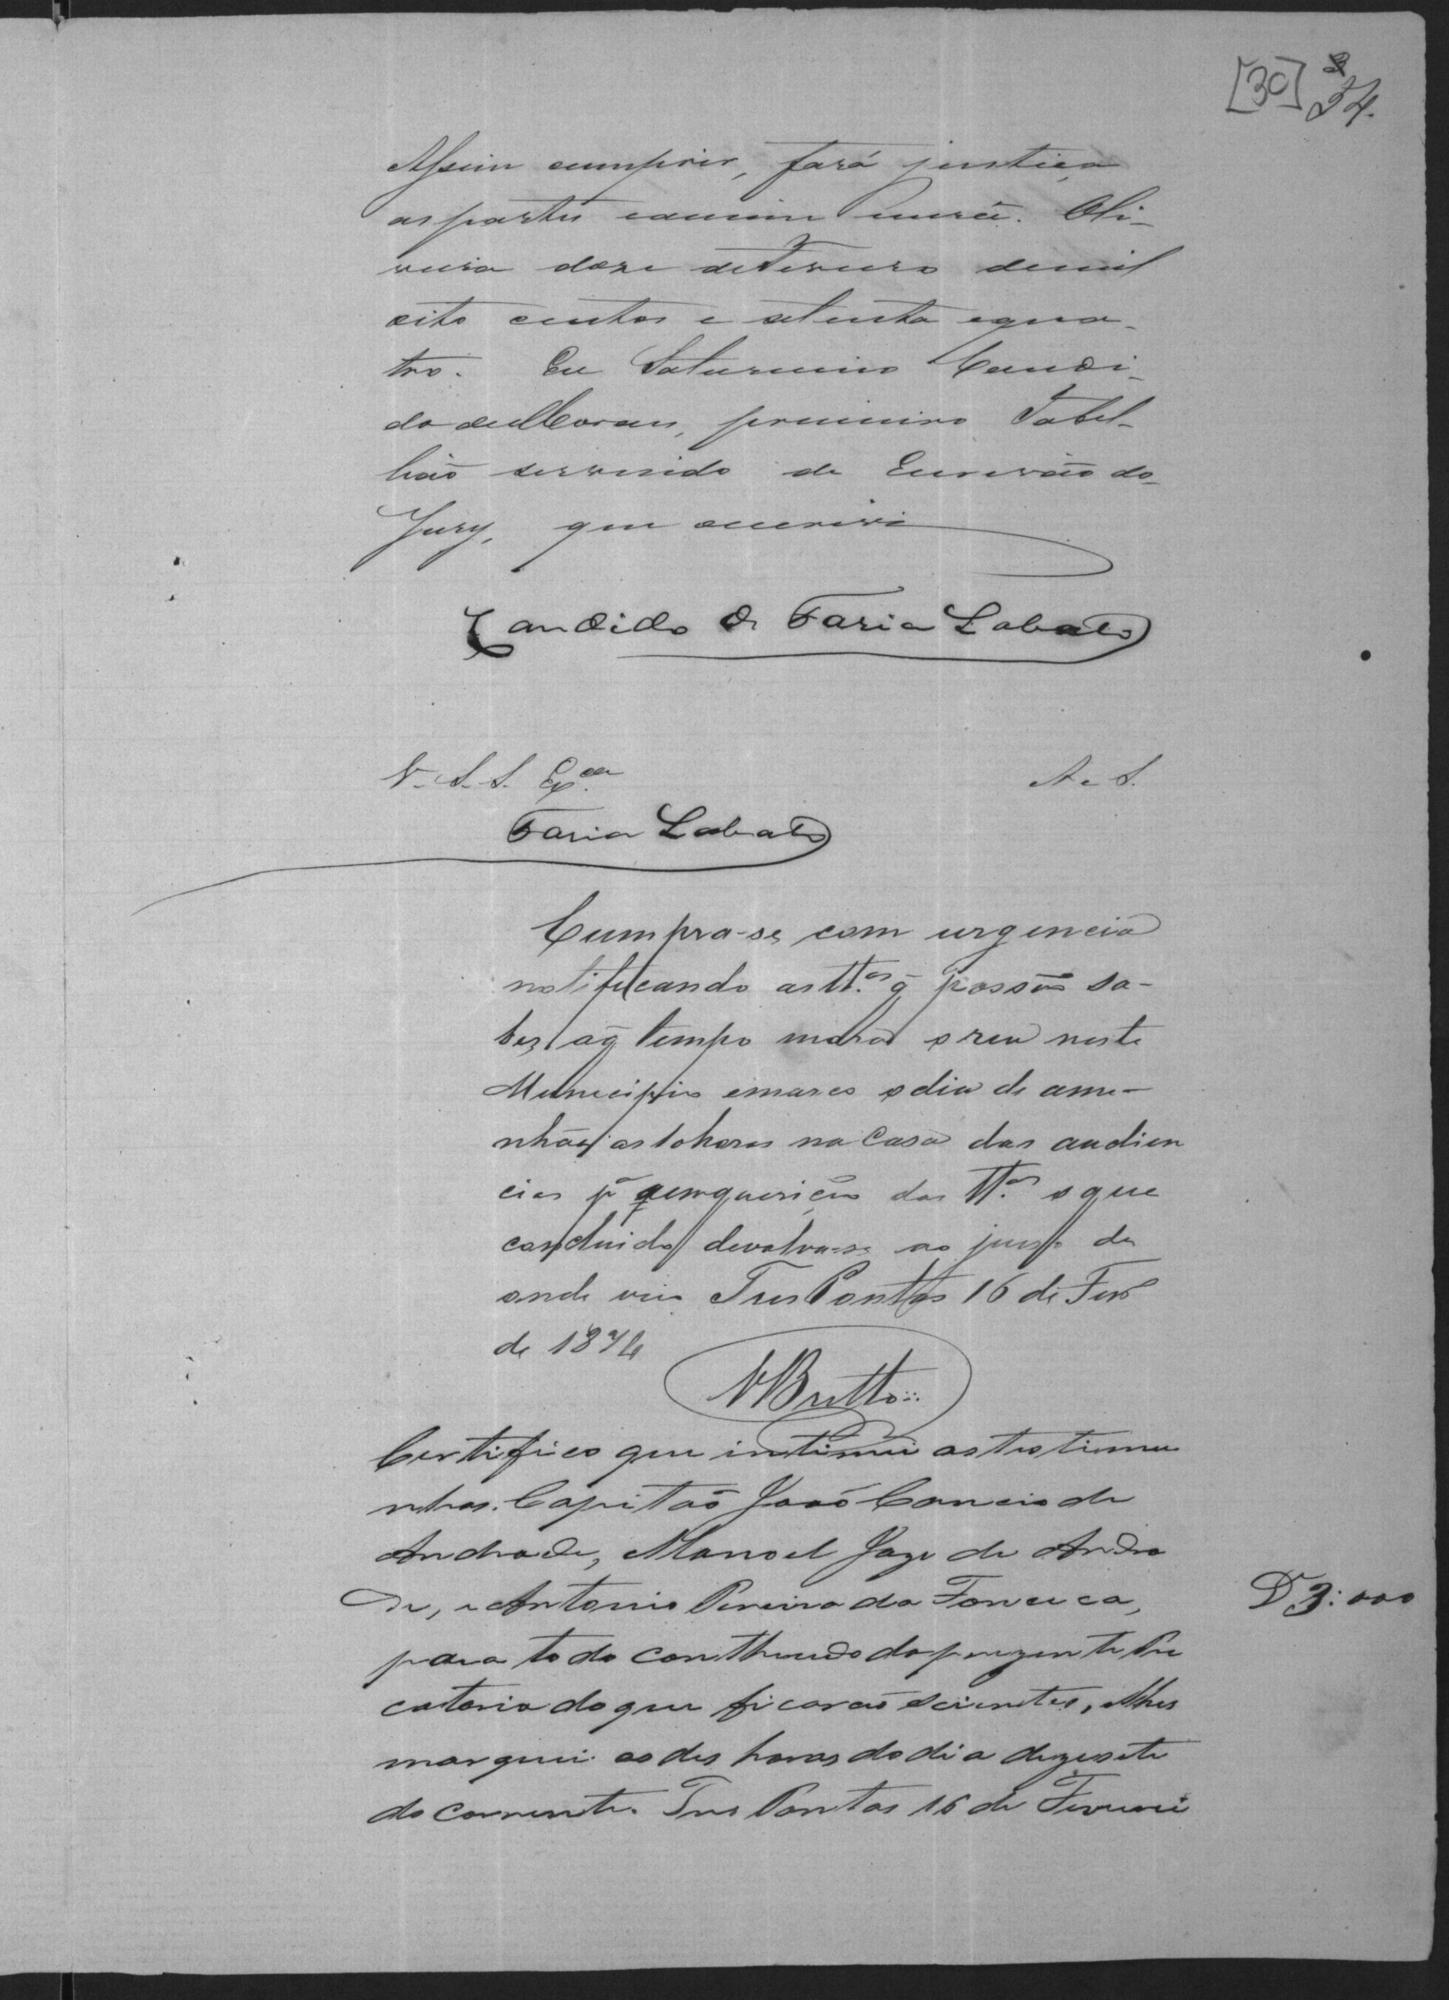 [30] 34.
Assim cumprir, fará justiça
as partes eamim mercê. Oli-
veira doze de Fevereiro de mil
oito centos e setenta e qua-
tro. Eu Saturnino Candi-
do de Moraes, primeiro Tabel-
lião servindo de Escrivão do
Jury, que escrevi
Candido de Faria Lobato
V. S. S. Ex.ca A. S.
Faria Lobato
Cumpra-se com urgencia
notificando as tt.as q̃ possão sa-
ber a q̃ tempo mora o reu neste
Municipio e marco o dia de ama-
nhãa as 10 horas na Casa das audien
cias pª inquerição das tt.as o que
concluido devolva-se ao juiso de
onde veio Tres Pontas 16 de Fevº
de 1874
VBritto
Certifico que intimei as testimu
nhas. Capitaõ Joaõ Correia de
Andrade, Manoel Joze de Andra
de, e Antonio Pereira da Fonceca,
para todo contheudo do prezente Pre
catoria do que ficaraõ scientes, e lhes
marquei as des horas do dia dezesete
do corrente. Tres Pontas 16 de Feverei
Dº 3:000